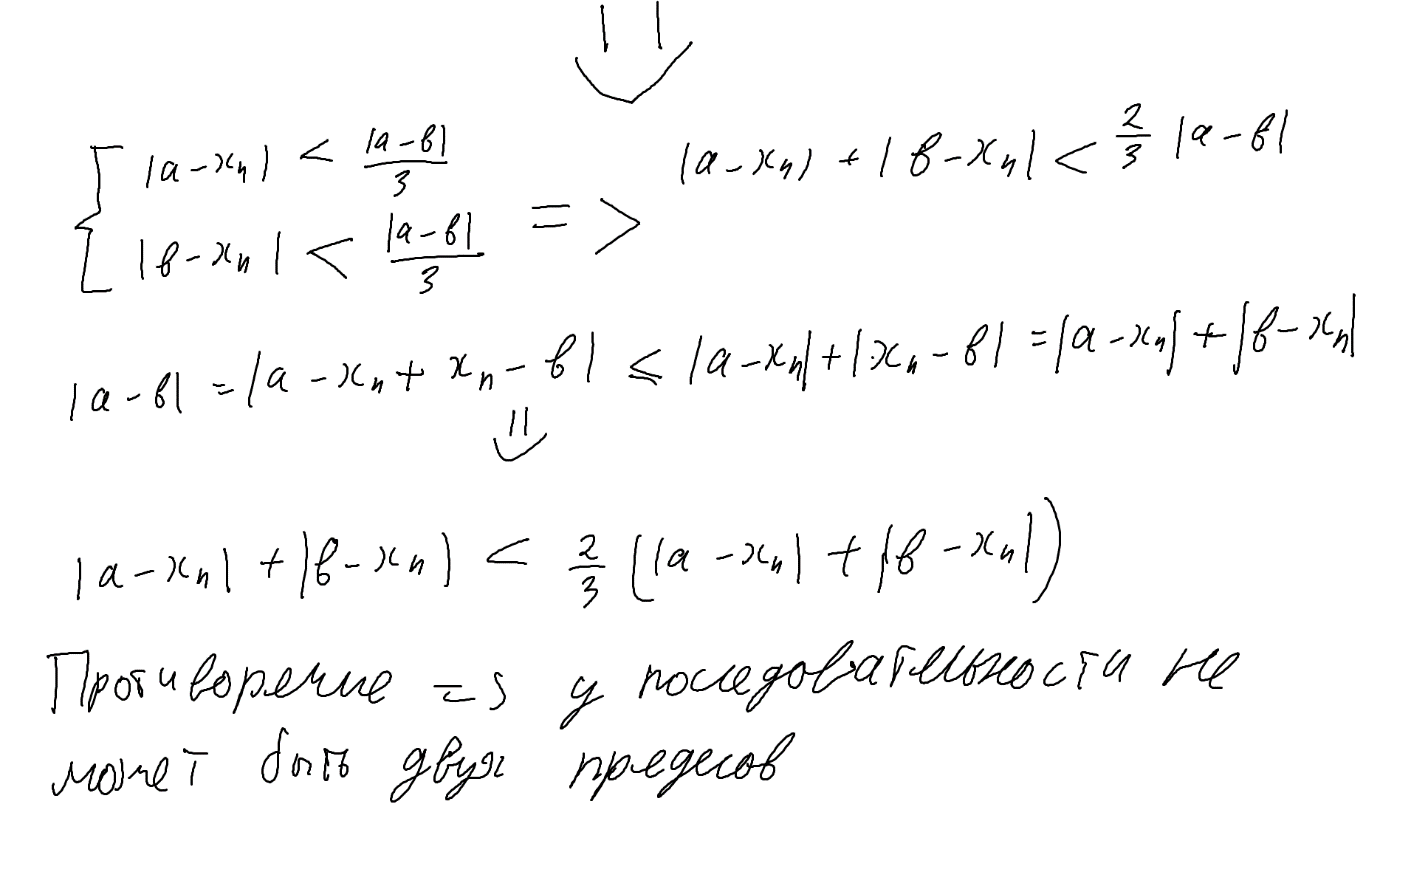 ⇓
{ |a-xₙ| < |a-в|/3 => |a-xₙ| + |в-xₙ| < 2/3 |a-в|
|в-xₙ| < |a-в|/3
|a-в| = |a-xₙ+xₙ-в| ≤ |a-xₙ|+|xₙ-в| = |a-xₙ|+|в-xₙ|
⇓
|a-xₙ| + |в-xₙ| < 2/3 (|a-xₙ| + |в-xₙ|)
Противоречие => у последовательности не
может быть двух пределов